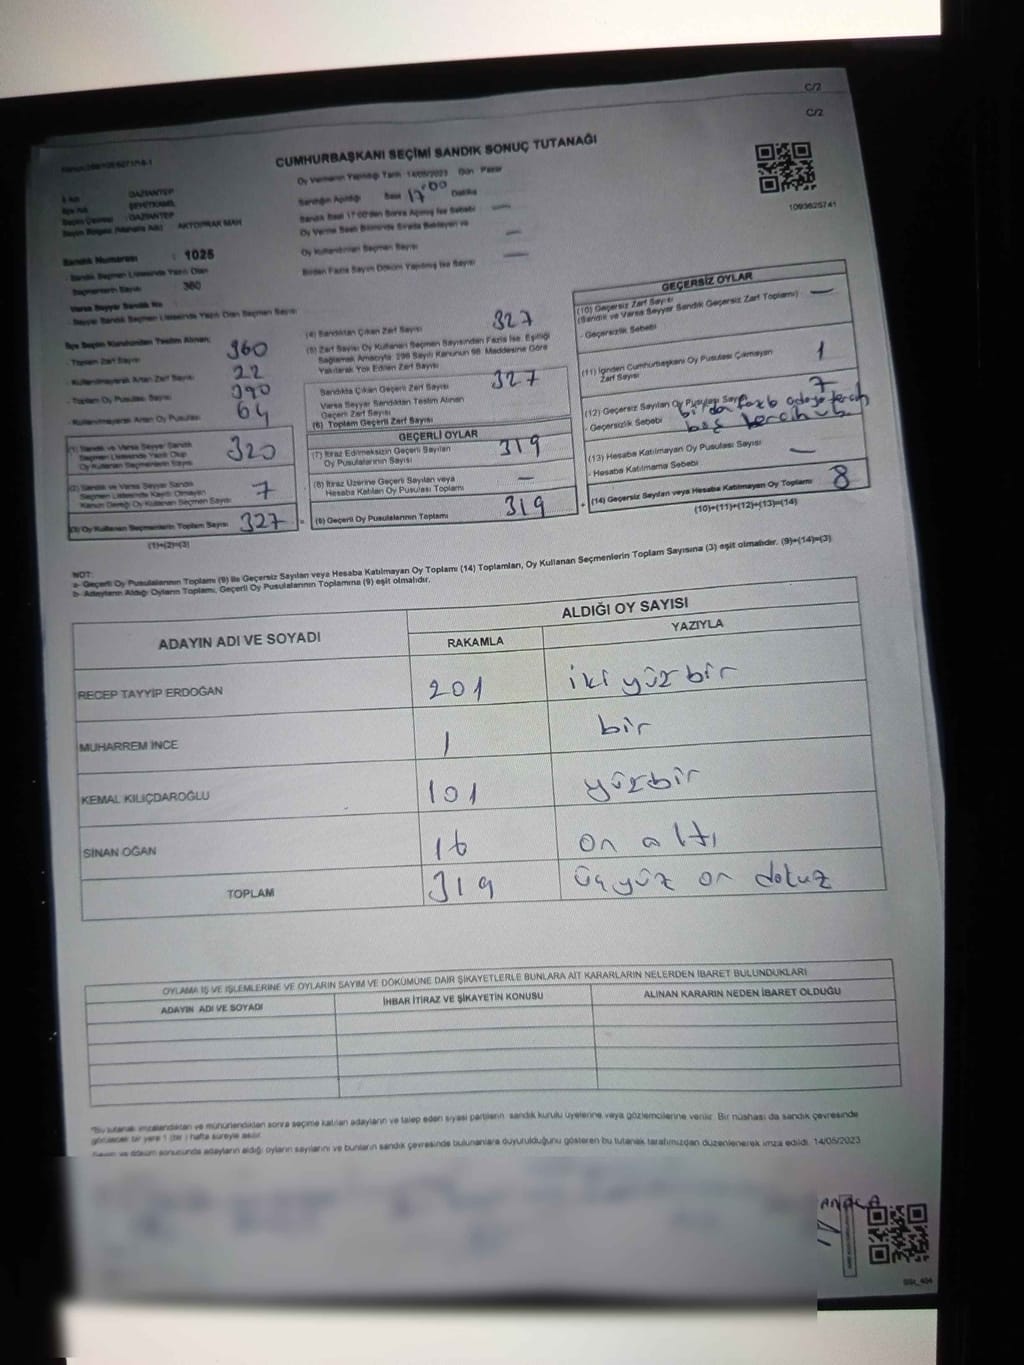 C/2
C/2
CUMHURBAŞKANI SEÇİMİ SANDIK SONUÇ TUTANAĞI
1093625741
Oy Vermenin Yapıldığı Tarih 14/05/2023 Gün Pazar
Sandığın Açıldığı Saat 17:00 Dakika
Sandık Saat 17:00'den Sonra Açılmış İse Sebebi —
Oy Verme Saati Bitiminde Sırada Bekleyen ve
Oy Kullandırılan Seçmen Sayısı —
Birden Fazla Sayım Döküm Yapılmış İse Sayısı —
İl Adı GAZİANTEP
İlçe Adı ŞEHİTKAMİL
Seçim Çevresi : GAZİANTEP
Seçim Bölgesi (Mahalle Adı) AKTOPRAK MAH
Sandık Numarası : 1025
- Sandık Seçmen Listesinde Yazılı Olan
Seçmenlerin Sayısı 360
Varsa Seyyar Sandık No
- Seyyar Sandık Seçmen Listesinde Yazılı Olan Seçmen Sayısı
İlçe Seçim Kurulundan Teslim Alınan;
- Toplam Zarf Sayısı 360
- Kullanılmayarak Artan Zarf Sayısı 22
- Toplam Oy Pusulası Sayısı 390
- Kullanılmayarak Artan Oy Pusulası 64
(1) Sandık ve Varsa Seyyar Sandık
Seçmen Listesinde Yazılı Olup
Oy Kullanan Seçmenlerin Sayısı 320
(2) Sandık ve Varsa Seyyar Sandık
Seçmen Listesinde Kayıtlı Olmayan
Kanun Gereği Oy Kullanan Seçmen Sayısı 7
(3) Oy Kullanan Seçmenlerin Toplam Sayısı 327
(1)+(2)=(3)
(4) Sandıktan Çıkan Zarf Sayısı 327
(5) Zarf Sayısı Oy Kullanan Seçmen Sayısından Fazla İse, Eşitliği
Sağlamak Amacıyla 298 Sayılı Kanunun 98. Maddesine Göre
Yakılarak Yok Edilen Zarf Sayısı
Sandıkta Çıkan Geçerli Zarf Sayısı 327
Varsa Seyyar Sandıktan Teslim Alınan
Geçerli Zarf Sayısı
(6) Toplam Geçerli Zarf Sayısı
GEÇERLİ OYLAR
(7) İtiraz Edilmeksizin Geçerli Sayılan
Oy Pusulalarının Sayısı 319
(8) İtiraz Üzerine Geçerli Sayılan veya
Hesaba Katılan Oy Pusulası Toplamı —
(9) Geçerli Oy Pusulalarının Toplamı 319
GEÇERSİZ OYLAR
(10) Geçersiz Zarf Sayısı
(Sandık ve Varsa Seyyar Sandık Geçersiz Zarf Toplamı) —
- Geçersizlik Sebebi
(11) İçinden Cumhurbaşkanı Oy Pusulası Çıkmayan
Zarf Sayısı 1
(12) Geçersiz Sayılan Oy Pusulası Sayısı 7
- Geçersizlik Sebebi
(13) Hesaba Katılmayan Oy Pusulası Sayısı —
- Hesaba Katılmama Sebebi
(14) Geçersiz Sayılan veya Hesaba Katılmayan Oy Toplamı 8
(10)+(11)+(12)+(13)=(14)
NOT:
a- Geçerli Oy Pusulalarının Toplamı (9) ile Geçersiz Sayılan veya Hesaba Katılmayan Oy Toplamı (14) Toplamları, Oy Kullanan Seçmenlerin Toplam Sayısına (3) eşit olmalıdır. (9)+(14)=(3)
b- Adayların Aldığı Oyların Toplamı, Geçerli Oy Pusulalarının Toplamına (9) eşit olmalıdır.
ADAYIN ADI VE SOYADI
ALDIĞI OY SAYISI
RAKAMLA YAZIYLA
RECEP TAYYİP ERDOĞAN 201 iki yüz bir
MUHARREM İNCE 1 bir
KEMAL KILIÇDAROĞLU 101 yüzbir
SİNAN OĞAN 16 on altı
TOPLAM 319 üçyüz on dokuz
OYLAMA İŞ VE İŞLEMLERİNE VE OYLARIN SAYIM VE DÖKÜMÜNE DAİR ŞİKAYETLERLE BUNLARA AİT KARARLARIN NELERDEN İBARET BULUNDUKLARI
ADAYIN ADI VE SOYADI İHBAR İTİRAZ VE ŞİKAYETİN KONUSU ALINAN KARARIN NEDEN İBARET OLDUĞU
*Bu tutanak imzalandıktan ve mühürlendikten sonra seçime katılan adayların ve talep eden siyasi partilerin sandık kurulu üyelerine veya gözlemcilerine verilir. Bir nüshası da sandık çevresinde
görülecek bir yere 1 (bir) hafta süreyle asılır.
Sayım ve döküm sonucunda adayların aldığı oyların sayılarını ve bunların sandık çevresinde bulunanlara duyurulduğunu gösteren bu tutanak tarafımızdan düzenlenerek imza edildi. 14/05/2023